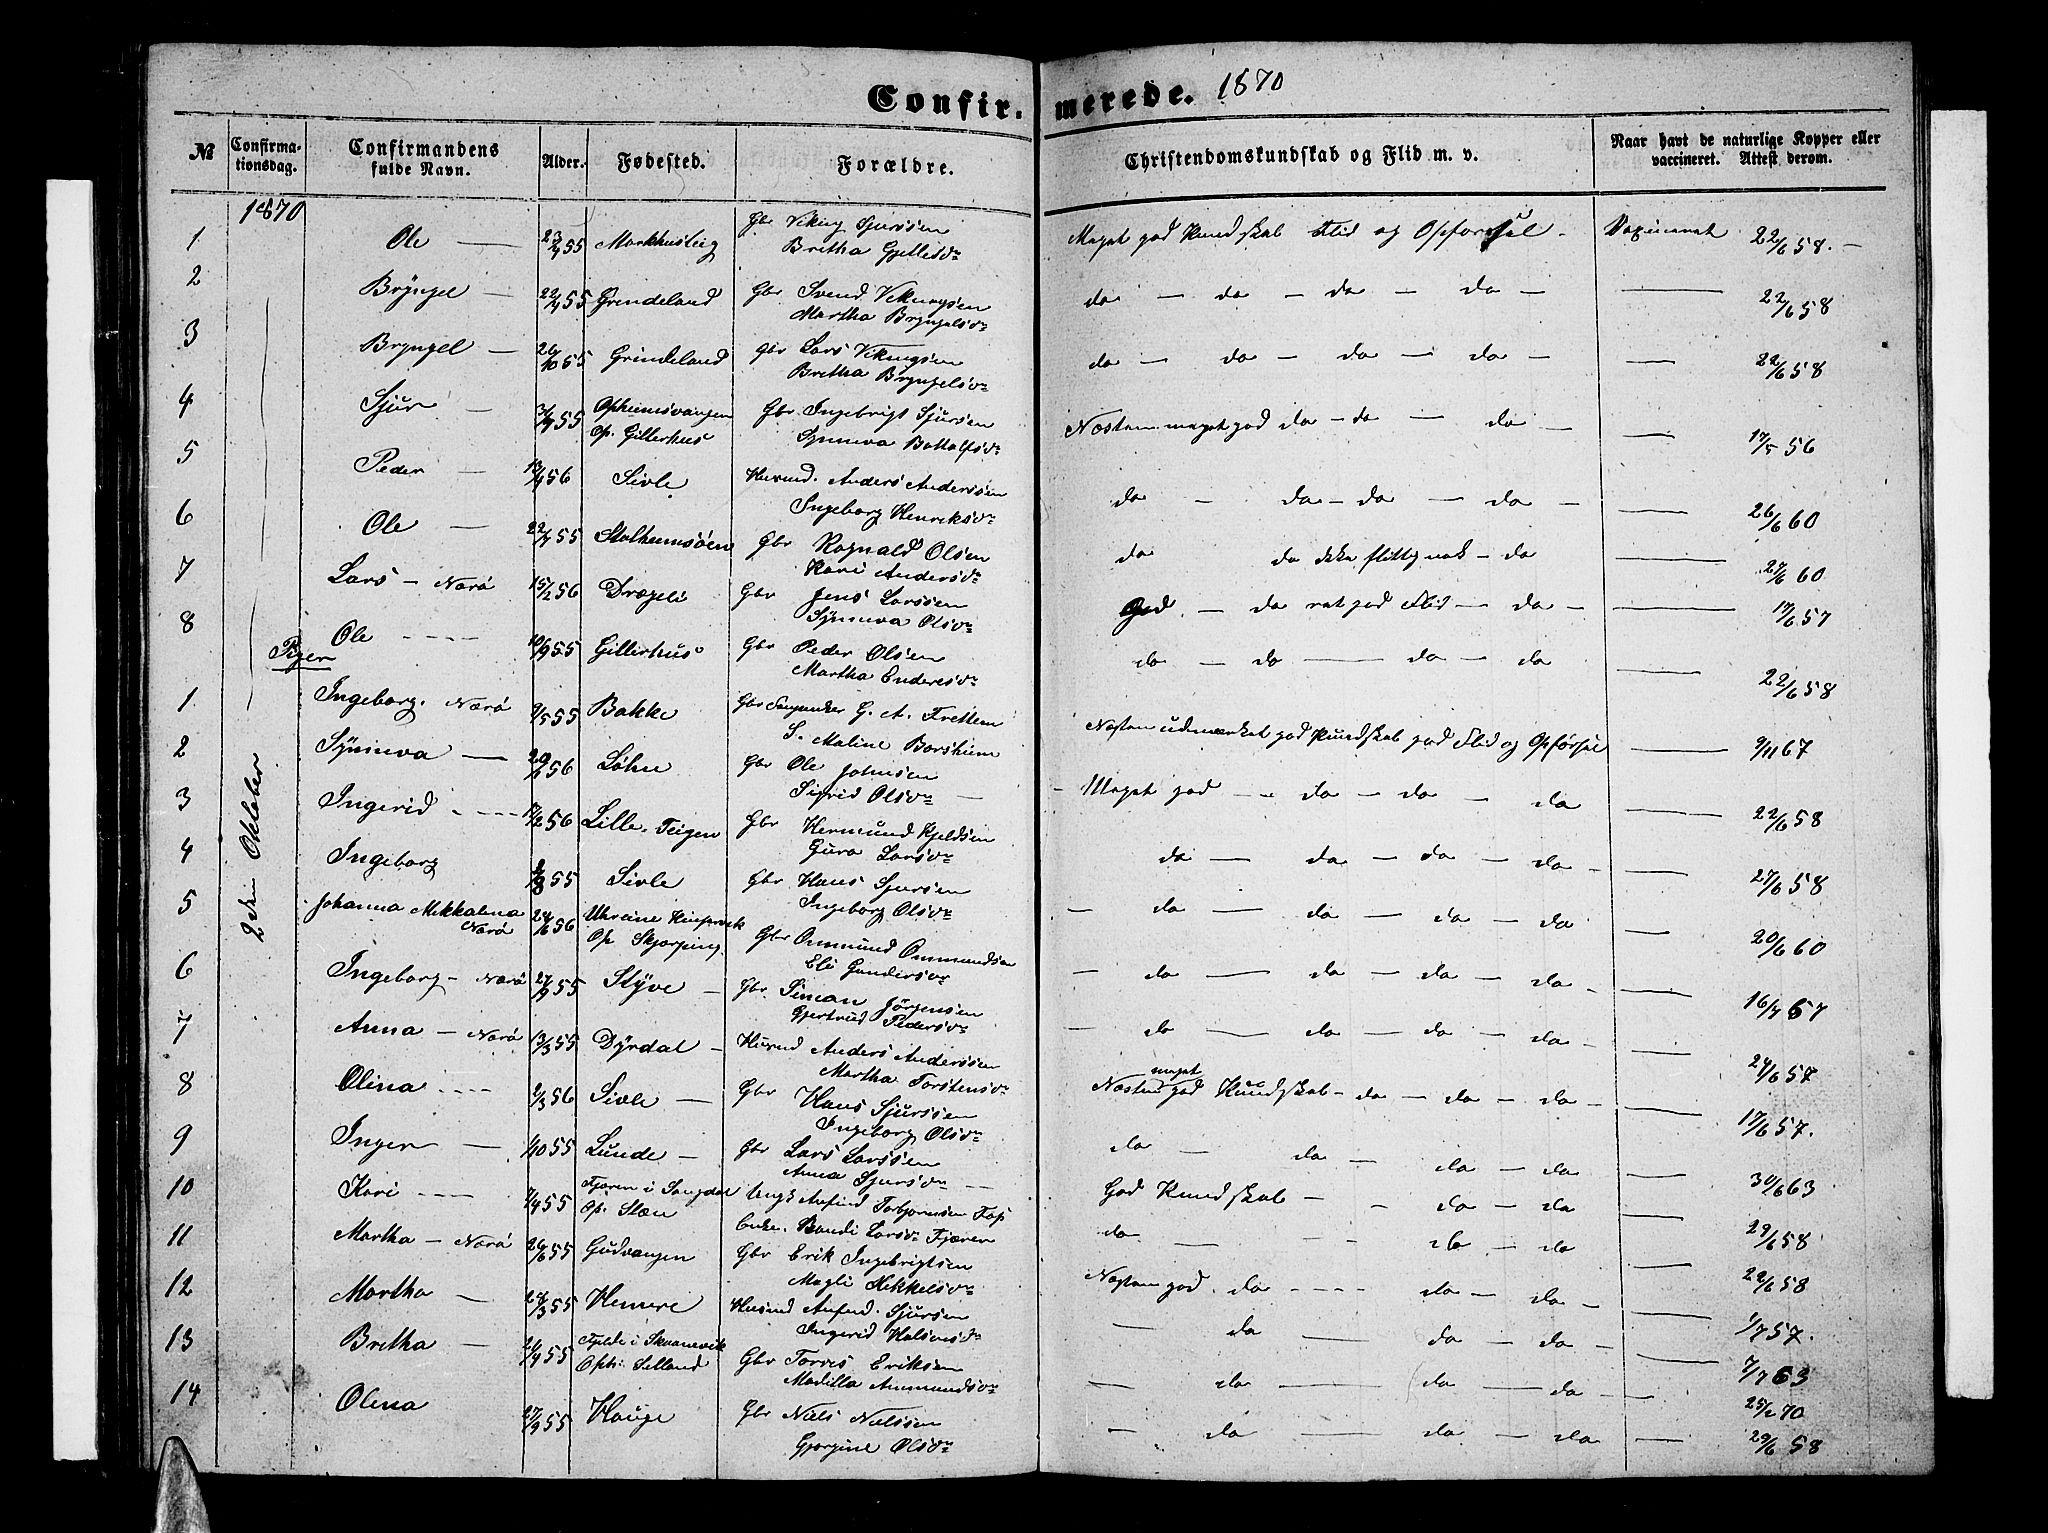 Confirmerede. 1870
№ Confirmationsdag. Confirmandens fulde Navn. Alder. Fødested. Forældre. Christendomskundskab og Flid m. v. Naar havt de naturlige Kopper eller vaccineret. Attest derom.
1870
1 Ole — 55 Markhusteig Gbr Viking Sjurssen Meget god Kundskab Flid og Opførsel - Vaxineret 22/6 58. -
Britha Gjellesdr
2 Bryngel — 22/4 55 Grindeland Gbr Svend Vikingsen do - do - do - do - — 22/6 58
Martha Bryngelsdr
3 Bryngel — 26/10 55 Grindeland Gbr Lars Vikingsen do - do - do - do - — 22/6 58
Britha Bryngelsdr
4 Sjur — 55 Opheimsvangen Gbr Ingebrigt Sjursen Næsten meget god do - do - do - — 17/5 56
Op. Gillerhus Synneva Bottolfsdr
5 Peder — 56 Sivle Husmd. Anders Anderssen do - do - do - do - — 26/6 60
Ingeborg Henriksdr
6 Ole — 55 Stalheimsøen Gbr Ragnald Olsen do do ikke flittig nok - do — 27/6 60
Kari Andersdr
7 Lars - Nærø 15/2 56 Drægeli Gbr Jens Larssen God - do ret god Flid - do - — 17/6 57
Synneva Olsdr
8 Ole ---- 10/9 55 Gillerhus Gbr Peder Olsen do - do — do - do — 22/6 58
Martha Enderesdr
Piger
1 Ingeborg. Nærø 9/5 55 Bakke Gbr G. A. Frettem Næsten udmærket god Kundskab god Flid og Opførsel — 9/11 67
S. Maline Borsheim
2 Synneva — 56 Løhne Gbr Ole Johnsen - Meget god - - do - do - do — 22/6 58
Sigrid Olsdr —
2den Oktober
3 Ingerid ---- 17/2 56 Lille-Teigen Gbr Hermund Kjeldsen do - do - do - do - — 27/6 58
Guro Larsdr
4 Ingeborg 55 Sivle Gbr Hans Sjursen - do - do - do - do — 20/6 60
Ingeborg Olsdr
5 Johanna Mikkaline 24/6 56 Uhreine Gbr Ommund Ommundsen - do - do - do - do - — 16/7 67
Nærø Op Skjerping Eli Gundersdr
6 Ingeborg - Nærø 27/9 55 Styve - Gbr. Siman Jørgensen - do - do - do - do - — 24/6 57
Gjertrud Pedersdr
7 Anna - Nærø 13/3 55 Dyrdal - Husmd Anders Anderssen Næsten meget god Kundskab - do - do - do - — 17/6 57.
Martha Torstensdr
8 Olina ---- 2/3 56 Sivle — Gbr Hans Sjurssen do - do - do - do — 30/6 63
Ingeborg Olsdr
9 Inger — 1/10 55 Lunde - Gbr Lars Larssen God Kundskab - - do - do — 29/6 58
Anna Sjursdr —
10 Kari ---- 7/4 55 Fjæren i Sogndal Ungk Anfind Torbjørnsen do — do - do — 22/6 58
Op. Stæn Enke. Randi Larsdr Fjæren
11 Martha - Nærø 26/6 55 Gudvangen Gbr Erik Ingebrigtsen Næsten god. do ---- do - do - — 1/7 57.
Magli Mikkelsdr
12 Martha — 24/3 55 Hemre Husmd Anfind. Sjursen - do do - do - — 7/7 63
Ingerid
13 Britha — 55 i Skaanevik Gbr Torres Eriksen - do — do — do - — 25/2 70
Opdr: Selland Madilla Ammundsdr
14 Olena 27/9 55 Hauge Gbr Niels Nielssen - do — do - do — 29/6 58
Gjørgine Olsdr